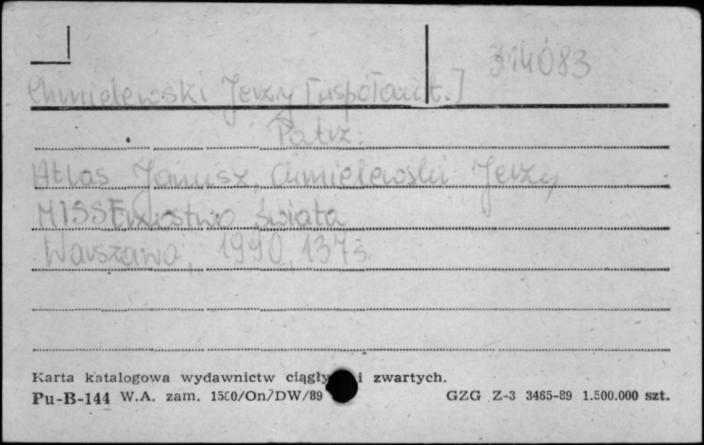 314083
Chmielewski Jerzy [współaut.]
Patrz:
Atlas Janusz, Chmielewski Jerzy
MISSErzostwo świata
Warszawa, 1990, 137 s.
Karta katalogowa wydawnictw ciągły i zwartych.
Pu-B-144 W.A. zam. 1500/On/DW/89 GZG Z-3 3465-89 1.500.000 szt.